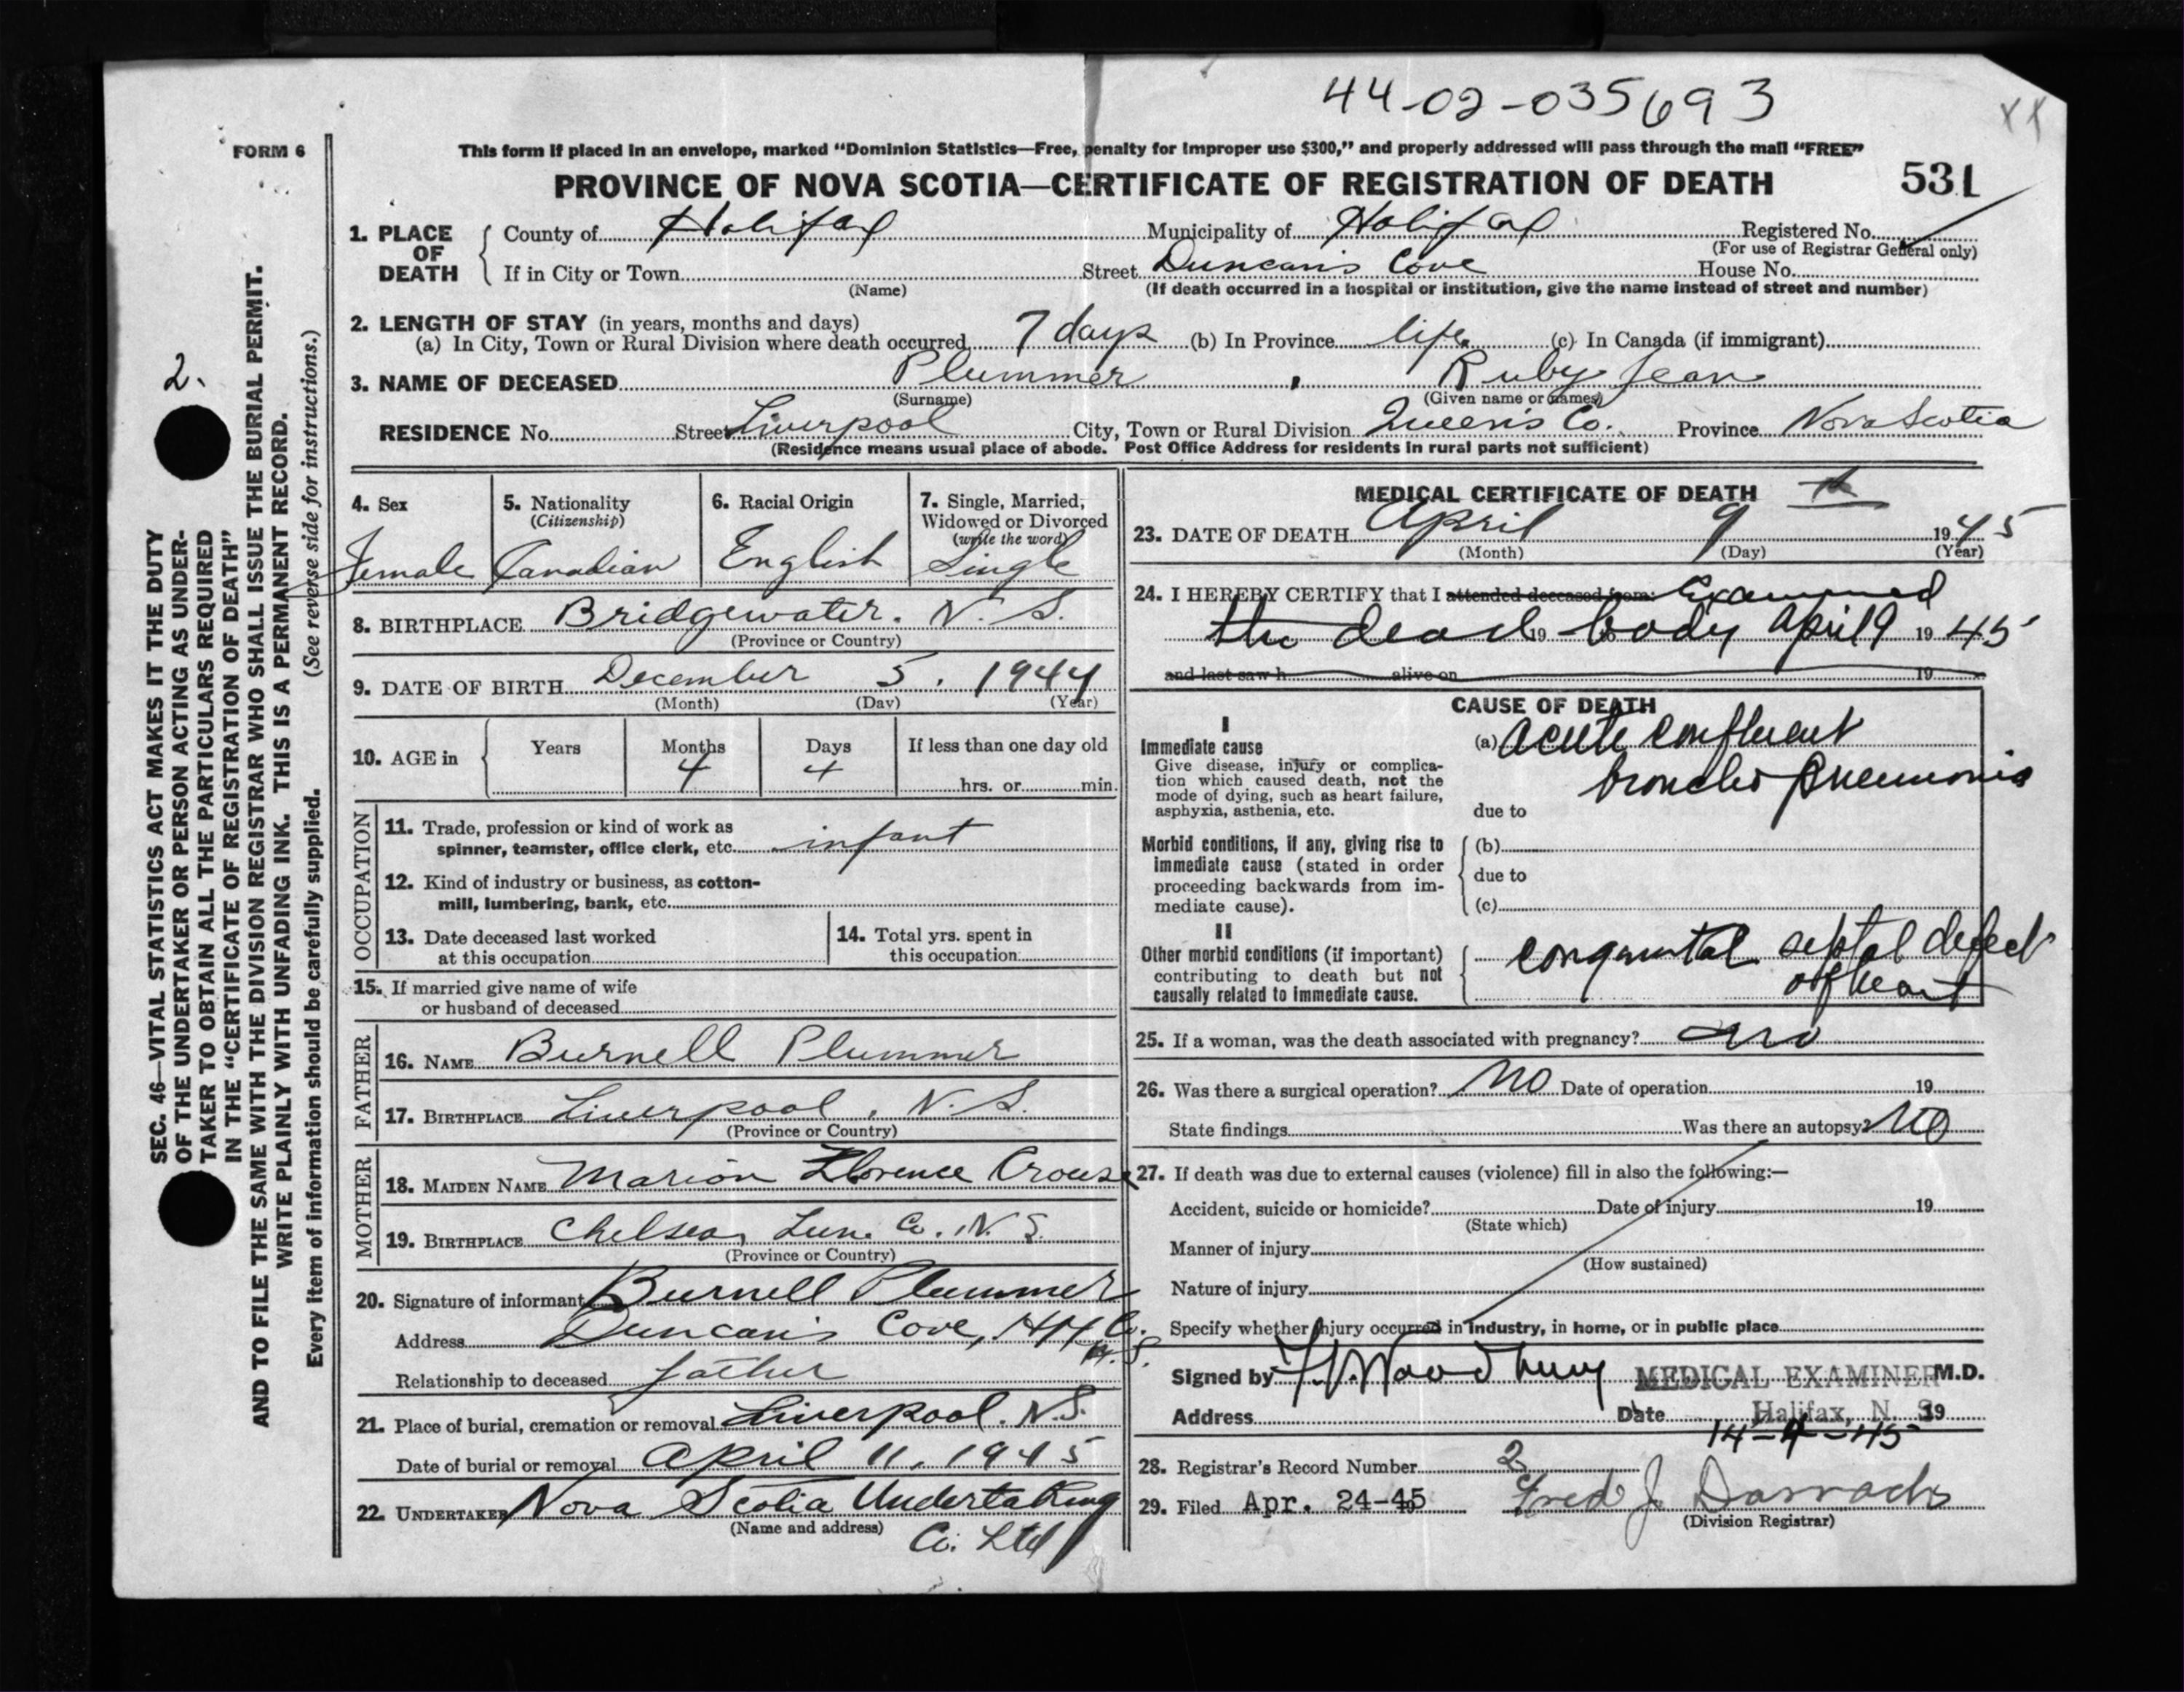 44-02-035693
XX
FORM 6
This form if placed in an envelope, marked "Dominion Statistics—Free, penalty for improper use $300," and properly addressed will pass through the mail "FREE"
PROVINCE OF NOVA SCOTIA—CERTIFICATE OF REGISTRATION OF DEATH
531
1. PLACE OF DEATH County of Halifax Municipality of Halifax Registered No.
(For use of Registrar General only)
If in City or Town Street Duncan's Cove House No.
(Name) (If death occurred in a hospital or institution, give the name instead of street and number)
2. LENGTH OF STAY (in years, months and days)
(a) In City, Town or Rural Division where death occurred 7 days (b) In Province life (c) In Canada (if immigrant)
3. NAME OF DECEASED Plummer, Ruby Jean
(Surname) (Given name or names)
RESIDENCE No. Street Liverpool City, Town or Rural Division Queen's Co. Province Nova Scotia
(Residence means usual place of abode. Post Office Address for residents in rural parts not sufficient)
4. Sex
Female
5. Nationality
(Citizenship)
Canadian
6. Racial Origin
English
7. Single, Married,
Widowed or Divorced
(write the word)
Single
8. BIRTHPLACE Bridgewater. N. S.
(Province or Country)
9. DATE OF BIRTH December 5. 1944
(Month) (Day) (Year)
10. AGE in Years Months Days If less than one day old
4 4
hrs. or min.
OCCUPATION
11. Trade, profession or kind of work as
spinner, teamster, office clerk, etc. infant
12. Kind of industry or business, as cotton-
mill, lumbering, bank, etc.
13. Date deceased last worked
at this occupation
14. Total yrs. spent in
this occupation
15. If married give name of wife
or husband of deceased
FATHER
16. NAME Burnell Plummer
17. BIRTHPLACE Liverpool, N. S.
(Province or Country)
MOTHER
18. MAIDEN NAME Marion Florence Crouse
19. BIRTHPLACE Chelsea, Lun. Co. N. S.
(Province or Country)
20. Signature of informant Burnell Plummer
Address Duncan's Cove, Hfx Co.
N.S.
Relationship to deceased father
21. Place of burial, cremation or removal Liverpool. N.S.
Date of burial or removal April 11, 1945
22. UNDERTAKER Nova Scotia Undertaking
(Name and address)
Co. Ltd
MEDICAL CERTIFICATE OF DEATH
23. DATE OF DEATH April 9 th 1945
(Month) (Day) (Year)
24. I HEREBY CERTIFY that I attended deceased from: Examined
the dead 19 body April 9 1945
and last saw h alive on 19
CAUSE OF DEATH
I
Immediate cause
Give disease, injury or complica-
tion which caused death, not the
mode of dying, such as heart failure,
asphyxia, asthenia, etc.
(a) acute confluent
broncho pneumonia
due to
Morbid conditions, if any, giving rise to
immediate cause (stated in order
proceeding backwards from im-
mediate cause).
(b)
due to
(c)
II
Other morbid conditions (if important)
contributing to death but not
causally related to immediate cause.
congenital septal defect
of heart
25. If a woman, was the death associated with pregnancy? no
26. Was there a surgical operation? No Date of operation 19
State findings Was there an autopsy? No
27. If death was due to external causes (violence) fill in also the following:—
Accident, suicide or homicide? Date of injury 19
(State which)
Manner of injury
(How sustained)
Nature of injury
Specify whether injury occurred in industry, in home, or in public place
Signed by Woodbury MEDICAL EXAMINER M.D.
Address Date Halifax, N. S. 19
14-4-45
28. Registrar's Record Number 2
29. Filed Apr. 24-45 Fred J. Darrach
(Division Registrar)
2.
SEC. 46—VITAL STATISTICS ACT MAKES IT THE DUTY
OF THE UNDERTAKER OR PERSON ACTING AS UNDER-
TAKER TO OBTAIN ALL THE PARTICULARS REQUIRED
IN THE "CERTIFICATE OF REGISTRATION OF DEATH"
AND TO FILE THE SAME WITH THE DIVISION REGISTRAR WHO SHALL ISSUE THE BURIAL PERMIT.
WRITE PLAINLY WITH UNFADING INK. THIS IS A PERMANENT RECORD.
Every item of information should be carefully supplied. (See reverse side for instructions.)